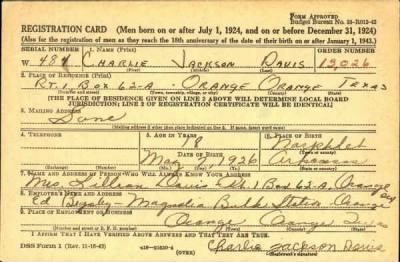 Form Approved
Budget Bureau No. 33-R012-43
REGISTRATION CARD (Men born on or after July 1, 1924, and on or before December 31, 1924)
(Also for the registration of men as they reach the 18th anniversary of the date of their birth on or after January 1, 1943.)
SERIAL NUMBER 1. NAME (Print) ORDER NUMBER
W 481 CHARLIE JACKSON DAVIS 13,026
(First) (Middle) (Last)
2. PLACE OF RESIDENCE (Print)
RT. 1 BOX 62-A ORANGE ORANGE TEXAS
[THE PLACE OF RESIDENCE GIVEN ON LINE 2 ABOVE WILL DETERMINE LOCAL BOARD
JURISDICTION; LINE 2 OF REGISTRATION CERTIFICATE WILL BE IDENTICAL]
3. MAILING ADDRESS
Same
4. TELEPHONE 5. AGE IN YEARS 6. PLACE OF BIRTH
18
DATE OF BIRTH
May 1926 Arkansas
(Exchange) (Number) (Mo.) (Day) (Yr.) (State or country)
7. NAME AND ADDRESS OF PERSON WHO WILL ALWAYS KNOW YOUR ADDRESS
Mrs. Davis Rt. 1 Box 62-A, Orange
8. EMPLOYER'S NAME AND ADDRESS
Ed Magnolia Bulk Station Orange
9. PLACE OF EMPLOYMENT OR BUSINESS
Orange Orange Texas
(Number and street or R. F. D. number) (Town) (County) (State)
I AFFIRM THAT I HAVE VERIFIED ABOVE ANSWERS AND THAT THEY ARE TRUE.
DSS Form 1 (Rev. 11-16-42) (OVER) Charlie Jackson Davis
(Registrant's signature)